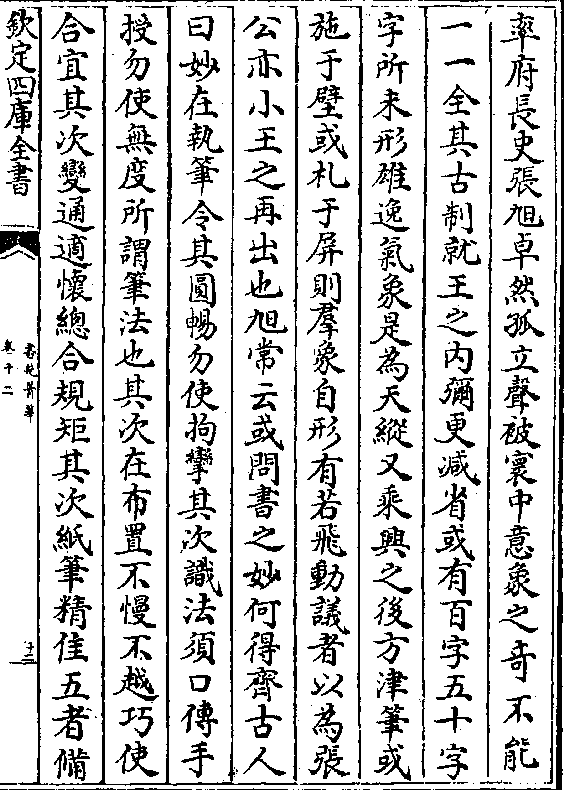 率府長史張旭卓然孤立聲被寰中意象之奇不能
一一全其古制就王之内彌更減省或有百字五十字
字所未形雄逸氣象是為天縱又乘興之後方津筆或
施于壁或札于屏則羣象自形有若飛動議者以為張
公亦小王之再出也旭常云或問書之妙何得齊古人
曰妙在執筆令其圓暢勿使拘攣其次識法須口傳手
授勿使無度所謂筆法也其次在布置不慢不越巧使
合宜其次變通適懷總合規矩其次紙筆精佳五者備
欽定四庫全書
書苑菁華
卷十二
十二